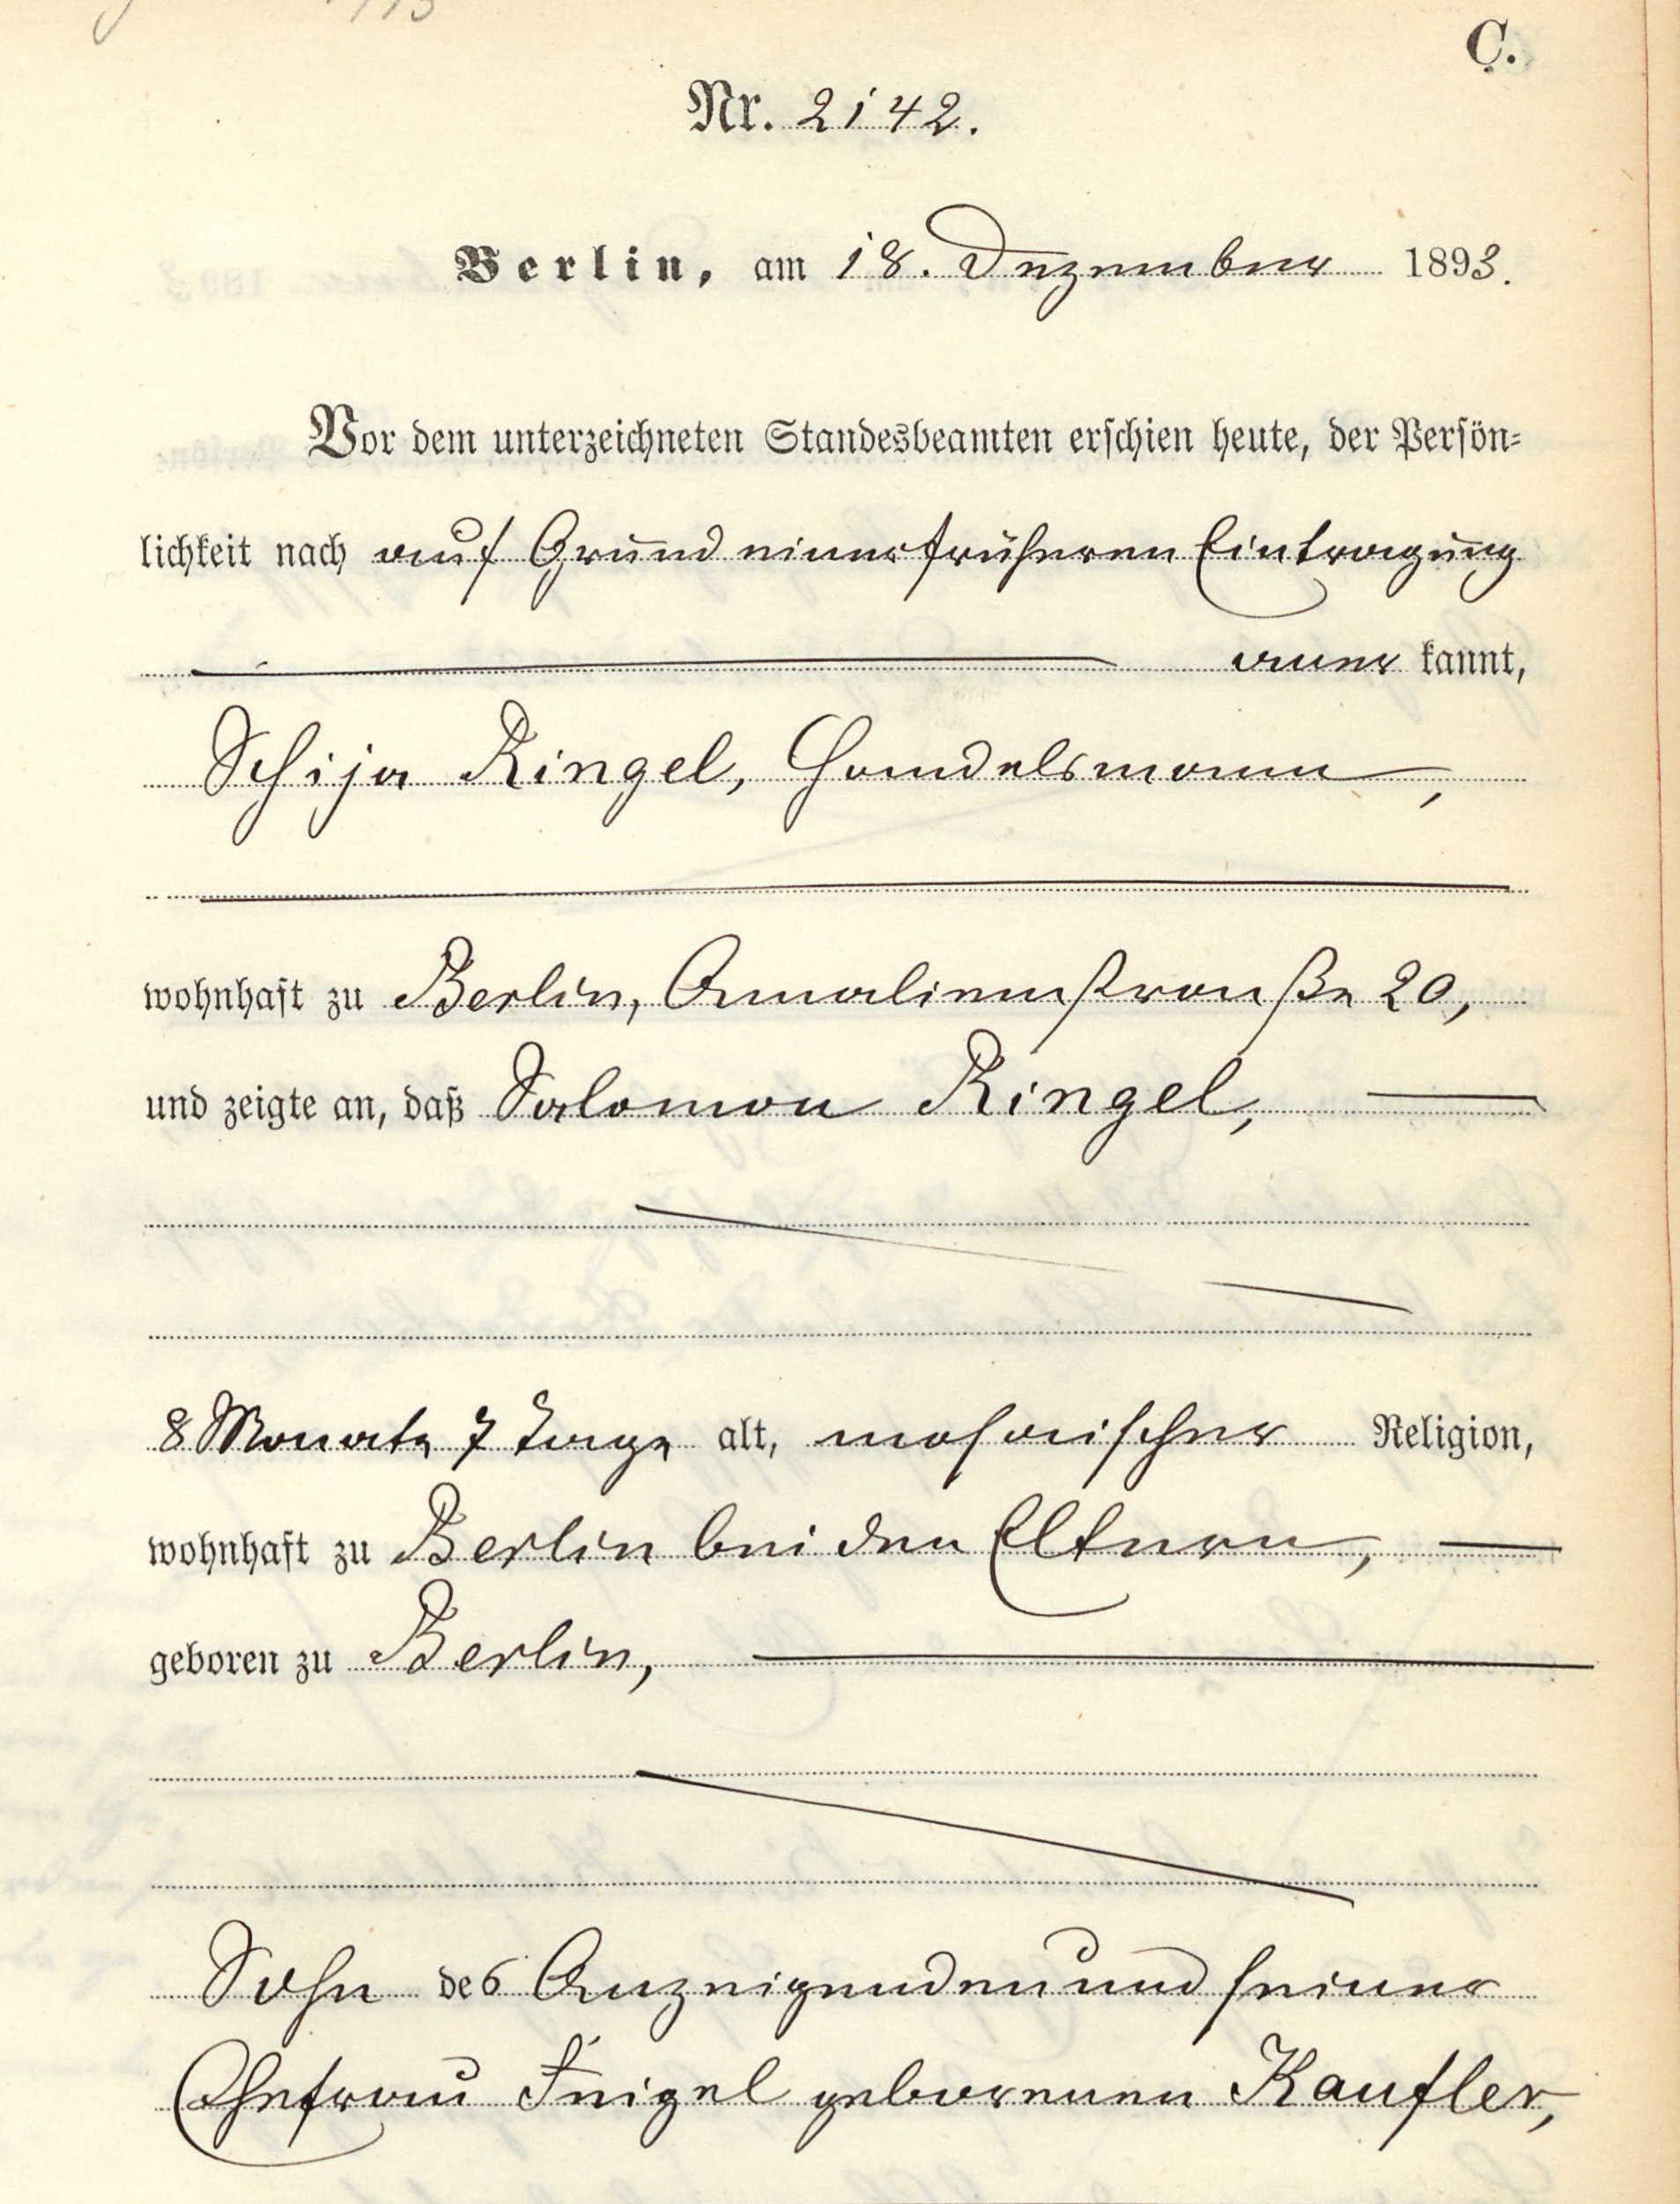 C.
Nr. 2142.
Berlin, am 18. Dezember 1893.
Vor dem unterzeichneten Standesbeamten erschien heute, der Persön-
lichkeit nach auf Grund einer früheren Eintragung
aner kannt,
Schija Ringel, Handelsmann,
wohnhaft zu Berlin, Amalienstraße 20,
und zeigte an, daß Salomon Ringel,
8 Monate 7 Tage alt, mosaischer Religion,
wohnhaft zu Berlin bei den Eltern,
geboren zu Berlin,
Sohn des Anzeigenden und seiner
Ehefrau Feigel geborenen Kaufler,